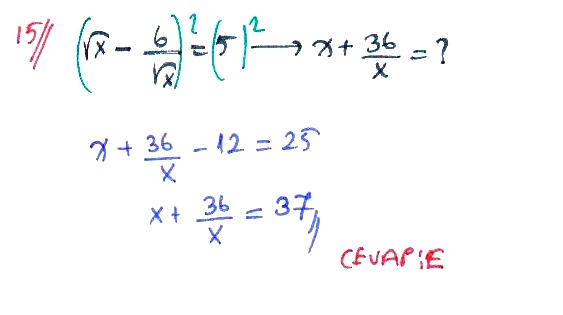 15// (√x - 6/√x)² = (5)² → x + 36/x = ?
x + 36/x - 12 = 25
x + 36/x = 37//
CEVAP: E